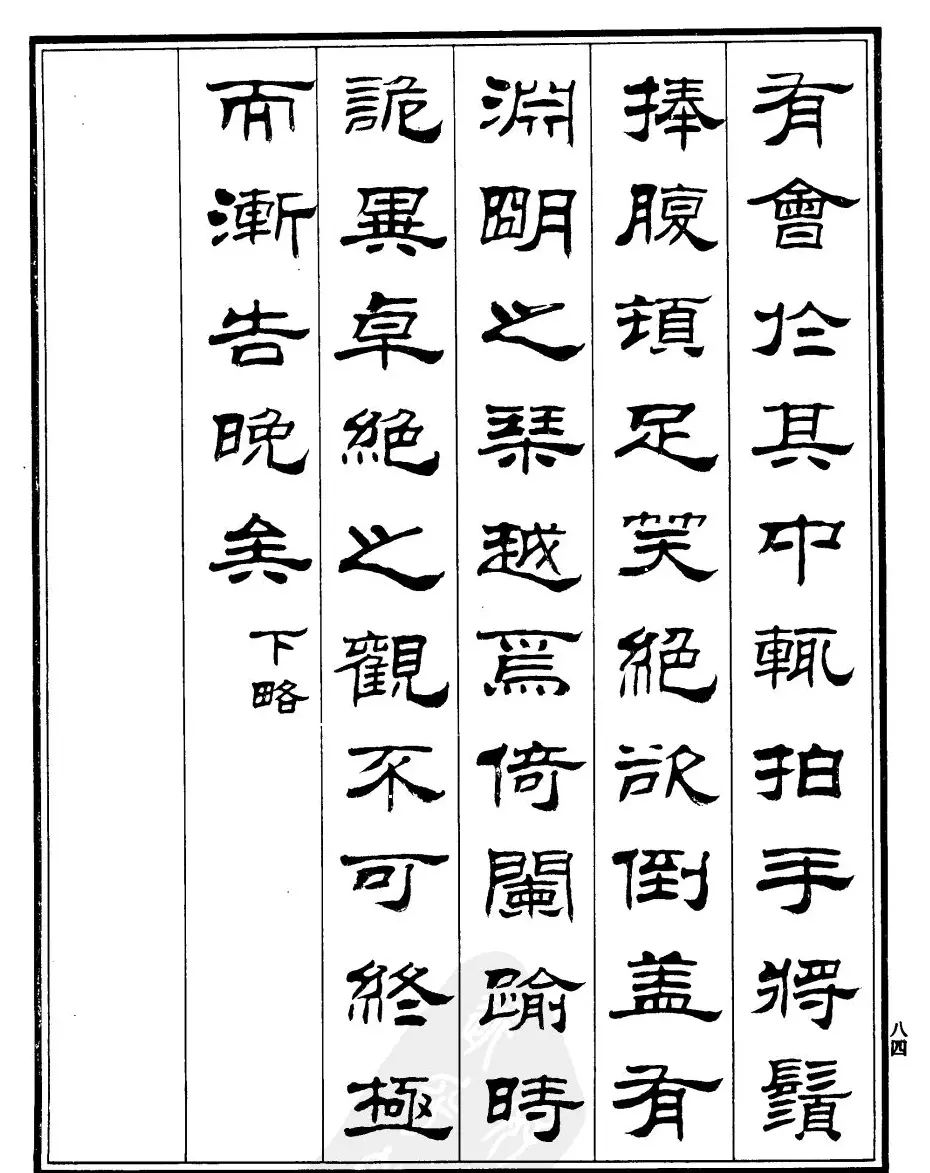 有會於其中輒拍手捋鬚
捧腹頓足笑絕欲倒盖有
淵明之琹越焉倚闌踰時
詭異卓絕之觀不可終極
而漸告晚矣 下略
八四